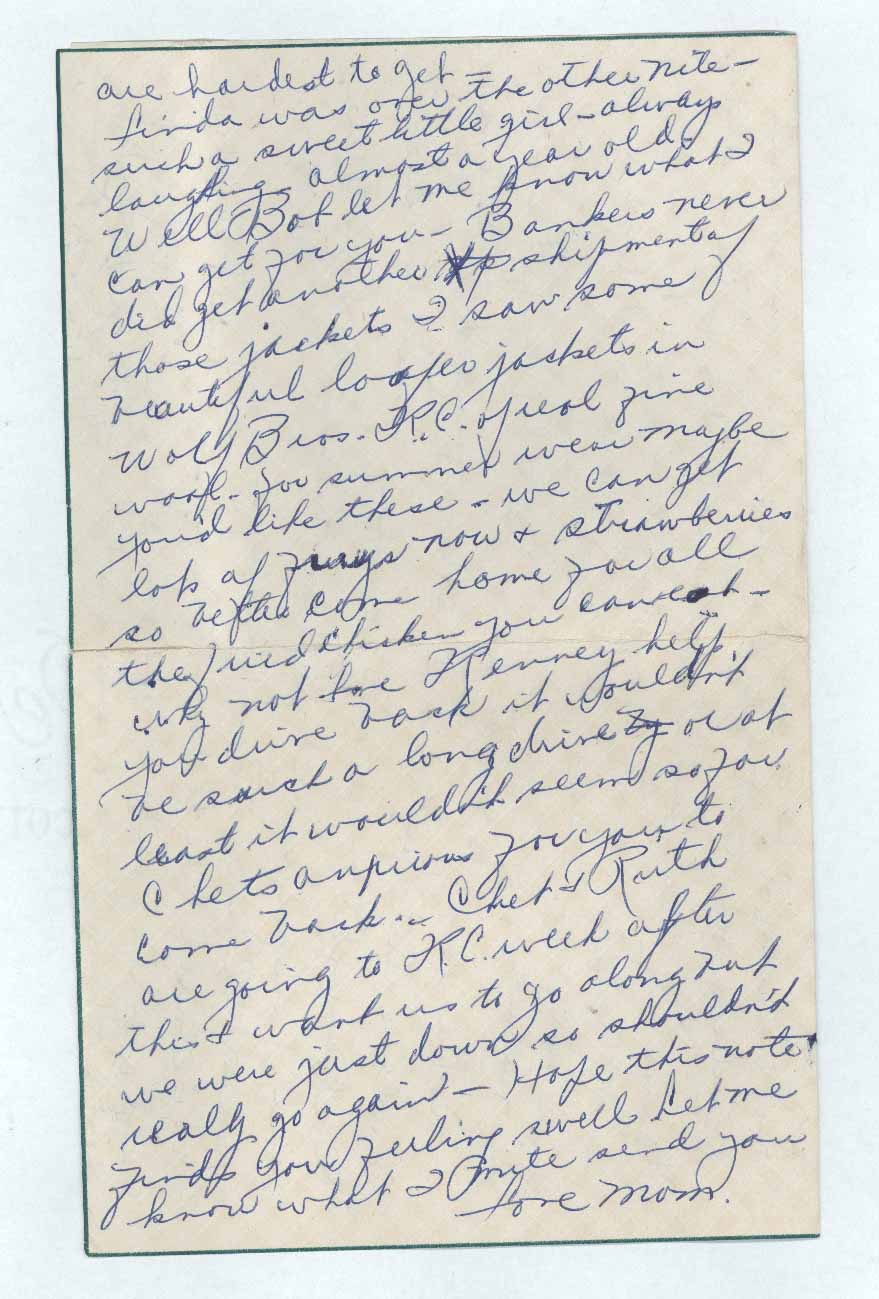 are hardest to get –
Linda was over the other nite –
such a sweet little girl – always
laughing – almost a year old.
Well Bob let me know what I
can get for you – Bankers never
did get another shipment of
those jackets I saw some
beautiful loafer jackets in
Wolf Bros. K.C. of real fine
wool – for summer wear maybe
you'd like these – we can get
lots of now & strawberries
so better come home for all
the fried chicken you can eat –
why not have Kenney help
you drive back it wouldn't
be such a long drive or at
least it wouldn't seem so far
Chets anxious for you to
come back – Chet & Ruth
are going to K.C. week after
this & want us to go along but
we were just down so shouldn't
really go again – Hope this note
finds you feeling swell Let me
know what I mite send you
Love Mom.